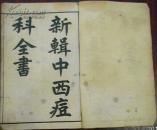 新輯中西痘
科全書